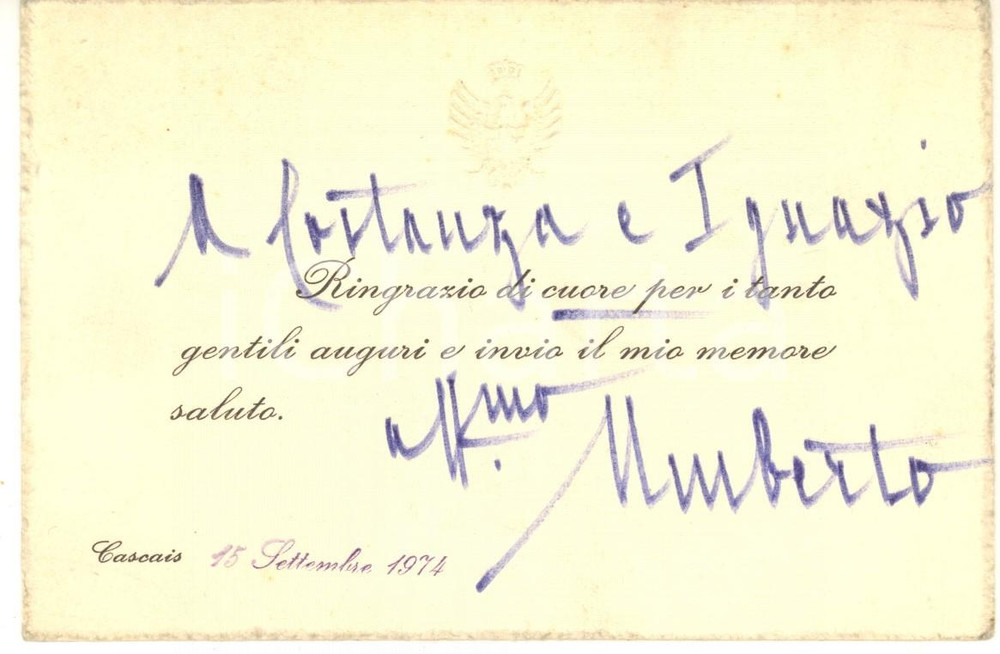 A Costanza e Ignazio
Ringrazio di cuore per i tanto
gentili auguri e invio il mio memore
saluto.
aff.mo Umberto
Cascais 15 Settembre 1974